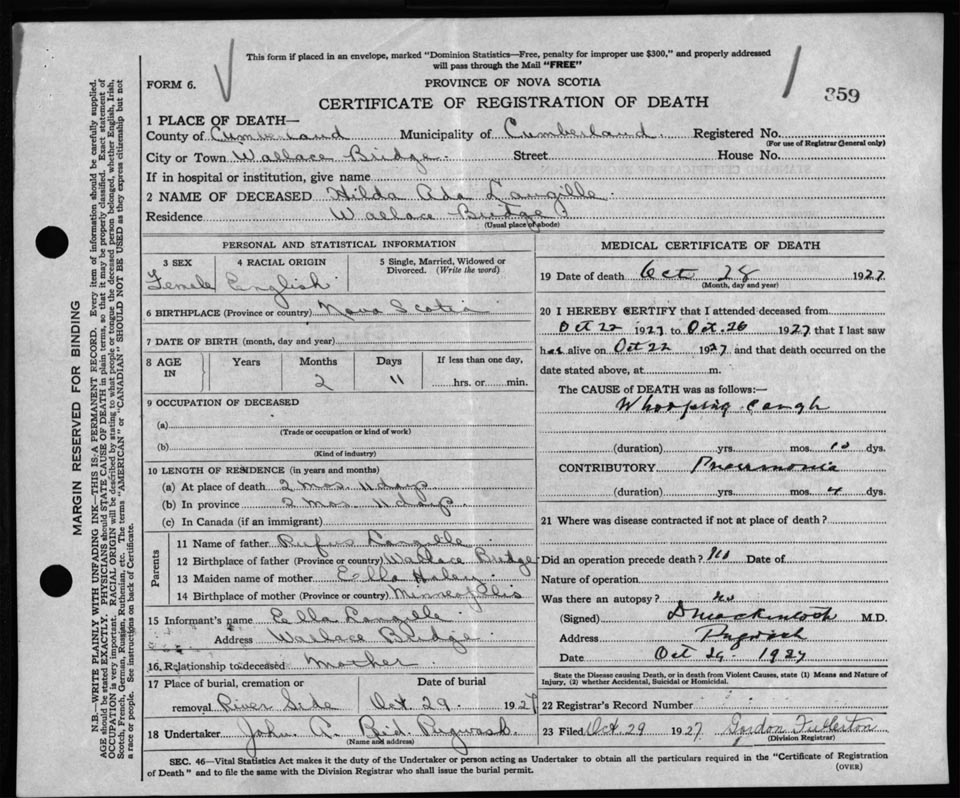 This form if placed in an envelope, marked "Dominion Statistics—Free, penalty for improper use $300," and properly addressed
will pass through the Mail "FREE"
FORM 6.
PROVINCE OF NOVA SCOTIA
359
CERTIFICATE OF REGISTRATION OF DEATH
1 PLACE OF DEATH—
County of Cumberland Municipality of Cumberland Registered No.
(For use of Registrar General only)
City or Town Wallace Bridge Street House No.
If in hospital or institution, give name
2 NAME OF DECEASED Hilda Ada Langille
Residence Wallace Bridge
(Usual place of abode)
PERSONAL AND STATISTICAL INFORMATION
3 SEX 4 RACIAL ORIGIN 5 Single, Married, Widowed or
Divorced. (Write the word)
Female English
6 BIRTHPLACE (Province or country) Nova Scotia
7 DATE OF BIRTH (month, day and year)
8 AGE IN Years Months Days If less than one day,
2 11 hrs. or min.
9 OCCUPATION OF DECEASED
(a)
(Trade or occupation or kind of work)
(b)
(Kind of industry)
10 LENGTH OF RESIDENCE (in years and months)
(a) At place of death 2 mos. 11 days
(b) In province 2 mos. 11 days
(c) In Canada (if an immigrant)
Parents
11 Name of father Rufus Langille
12 Birthplace of father (Province or country) Wallace Bridge
13 Maiden name of mother Ella Haley
14 Birthplace of mother (Province or country) Minneapolis
15 Informant's name Ella Langille
Address Wallace Bridge
16. Relationship to deceased Mother
17 Place of burial, cremation or Date of burial
removal River Side Oct 29. 1927
18 Undertaker John A. Reid. Pugwash
(Name and address)
MEDICAL CERTIFICATE OF DEATH
19 Date of death Oct 28 1927
(Month, day and year)
20 I HEREBY CERTIFY that I attended deceased from
Oct 22 1927 to Oct. 26 1927 that I last saw
her alive on Oct 22 1927 and that death occurred on the
date stated above, at m.
The CAUSE of DEATH was as follows:—
Whooping Cough
(duration) yrs. mos. 10 dys.
CONTRIBUTORY Pneumonia
(duration) yrs. mos. 4 dys.
21 Where was disease contracted if not at place of death?
Did an operation precede death? No Date of
Nature of operation
Was there an autopsy? no
(Signed) D Mackintosh M.D.
Address Pugwash
Date Oct 29. 1927
State the Disease causing Death, or in death from Violent Causes, state (1) Means and Nature of
Injury, (2) whether Accidental, Suicidal or Homicidal.
22 Registrar's Record Number
23 Filed Oct. 29 1927 Gordon Fullerton
(Division Registrar)
SEC. 46—Vital Statistics Act makes it the duty of the Undertaker or person acting as Undertaker to obtain all the particulars required in the "Certificate of Registration
of Death" and to file the same with the Division Registrar who shall issue the burial permit.
(OVER)
MARGIN RESERVED FOR BINDING
N.B.—WRITE PLAINLY WITH UNFADING INK—THIS IS A PERMANENT RECORD. Every item of information should be carefully supplied.
AGE should be stated EXACTLY. PHYSICIANS should STATE CAUSE OF DEATH in plain terms, so that it may be properly classified. Exact statement of
OCCUPATION is very important. RACIAL ORIGIN will be described by stating to what people or tongue the deceased person belonged, whether English, Irish,
Scotch, French, German, Russian, Ruthenian, etc. The terms "AMERICAN" or "CANADIAN" SHOULD NOT BE USED as they express citizenship but not
a race or people. See instructions on back of Certificate.